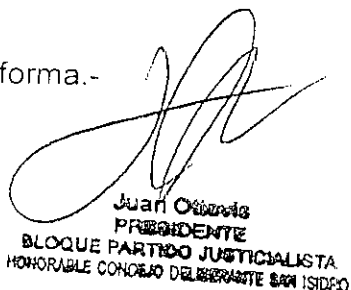 forma.-
Juan
PRESIDENTE
BLOQUE PARTIDO JUSTICIALISTA
HONORABLE CONCEJO DELIBERANTE SAN ISIDRO